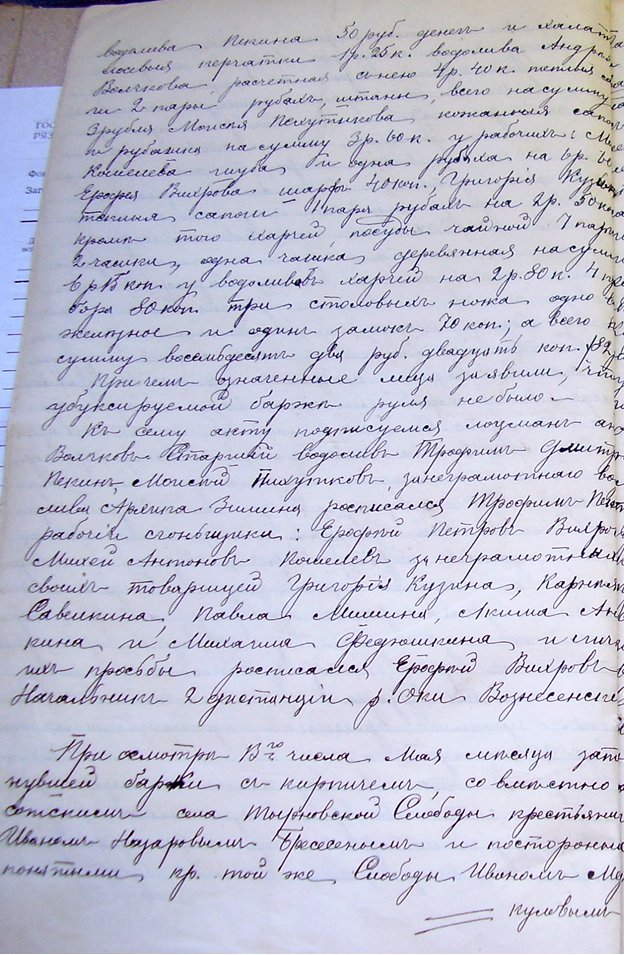 ГОС
РЯЗ
водолива Пекина 50 руб. денегъ и халатъ
лосевыя перчатки 1р. 25к. водолива Андрея
Волчкова, расчетная съ нею 4р. 40к. теплыя сапо
ги 2 пары рубахъ, штаны, всего на сумму
3 рубля Моисея Пехутикова кожанная сапоги
и рубашка на сумму 3р. 60к. у рабочихъ: Михея
Кошелева шуба и одна рубаха на 6р.
Ерофея Вихрова шарфъ 40коп., Григорія Кузина
сапоги 1 пара рубахъ на 2р. 50коп
кроме того харчей, посуды чайной 7 паръ
2 чашки, одна чашка деревянная на сумму
6р у водоливовъ харчей на 2р. 80к. 4
80коп. три столовыхъ ножа одно
железное и одинъ замокъ 70 коп; а всего на
сумму восемьдесятъ два руб. двадцать коп. /82р
При чемъ означенные лица заявили, что
у буксируемой баржи руля не было. –
Къ сему акту подписуемся лоцманъ Анд
Волчковъ Старшій водоливъ Трофимъ Дмитр
Пекинъ, Моисей Пихутковъ, за неграмотнаго во
лива Архипа Зимина росписался Трофимъ Пекинъ
рабочіи огоньщики: Ерофей Петровъ Вихровъ
Михей Антоновъ Кошелевъ за неграмотныхъ
своихъ товарищей Григорія Кузина, Карпа
Савелкина, Павла Мишина, Акима Ан
кина и Михаила Федюшкина и лично
ихъ просьбы росписался Ерофей Вихровъ
Начальникъ 2 дистанціи р. Оки Вознесенскій
При осмотре 13го числа Мая месяца зато
нувшей баржи съ кирпичемъ, совместно съ
сотскимъ села Тырновской Слободы крестьянин
Иваномъ Назаровымъ и посторонни
понятыми кр. той же Слободы Иваномъ Ме
куловымъ